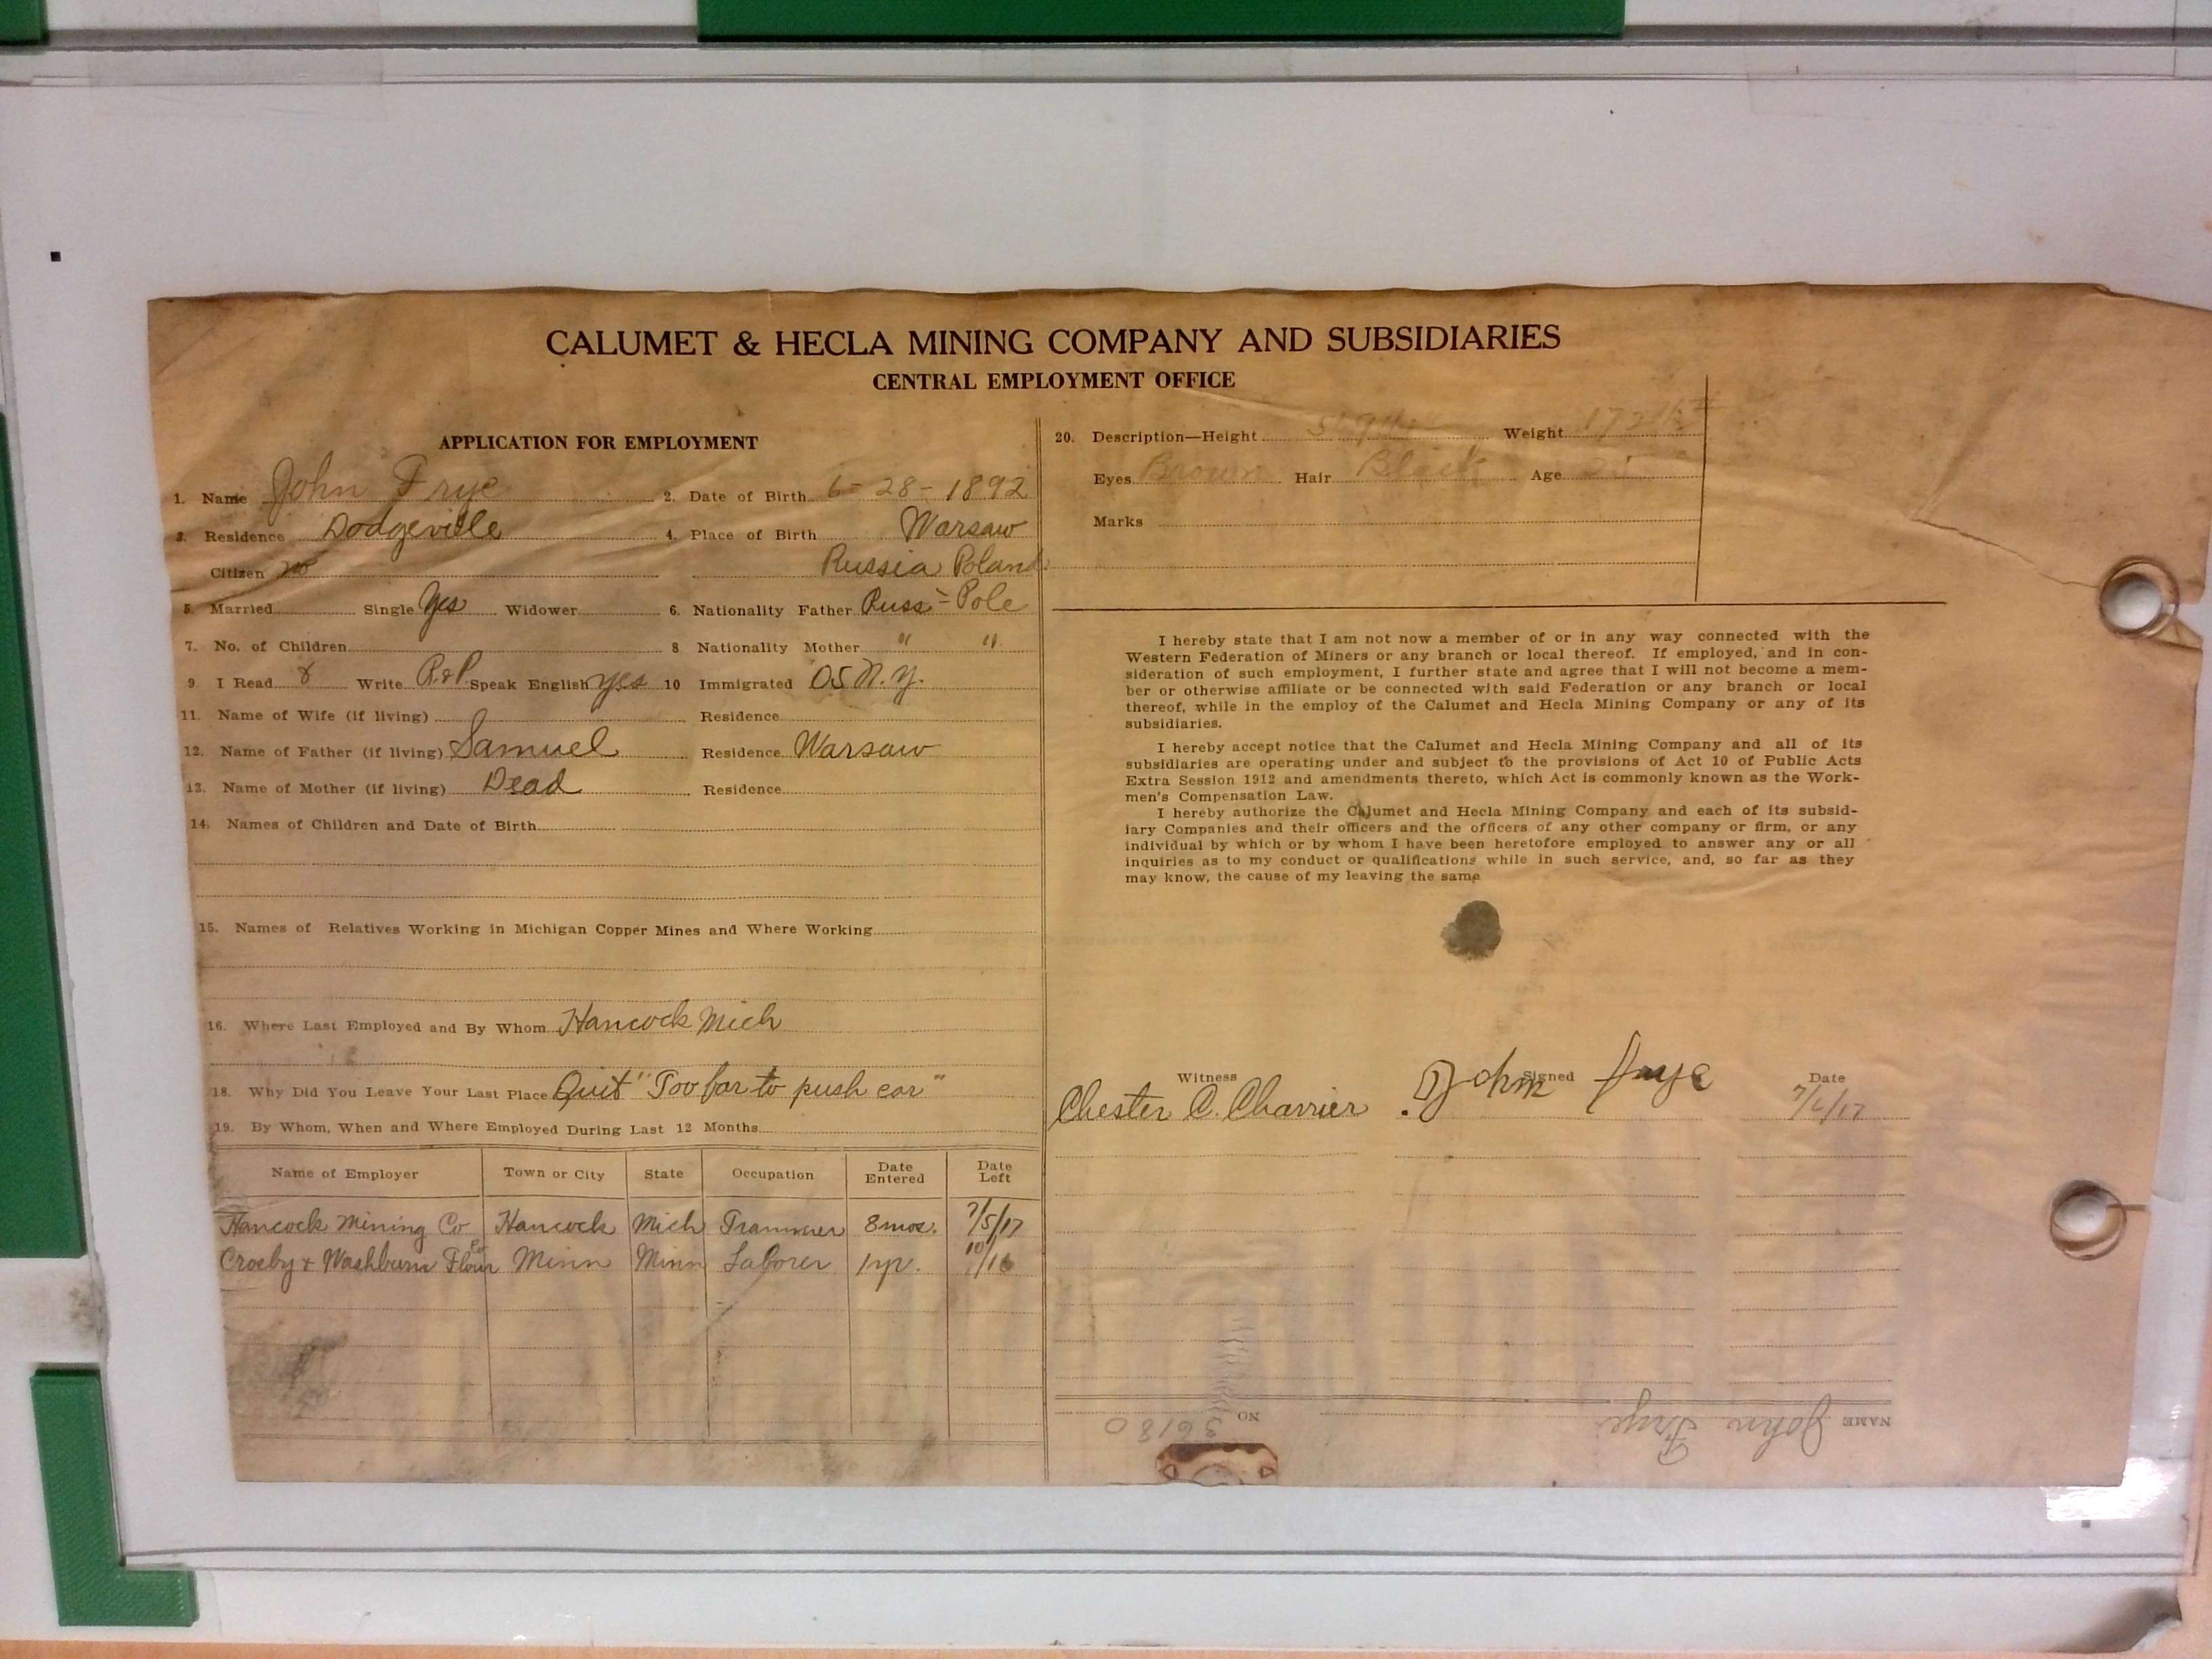 CALUMET & HECLA MINING COMPANY AND SUBSIDIARIES
CENTRAL EMPLOYMENT OFFICE
APPLICATION FOR EMPLOYMENT
1. Name John Frye 2. Date of Birth 6-28-1892
3. Residence Dodgeville 4. Place of Birth Warsaw
Citizen no Russia Poland
5. Married Single Yes Widower 6. Nationality Father Russ-Pole
7. No. of Children 8 Nationality Mother " "
9. I Read & Write R&P. Speak English yes 10 Immigrated 05 N.Y.
11. Name of Wife (if living) Residence
12. Name of Father (if living) Samuel Residence Warsaw
13. Name of Mother (if living) Dead Residence
14. Names of Children and Date of Birth
15. Names of Relatives Working in Michigan Copper Mines and Where Working
16. Where Last Employed and By Whom Hancock Mich
18. Why Did You Leave Your Last Place Quit "Too far to push car"
19. By Whom, When and Where Employed During Last 12 Months
Name of Employer Town or City State Occupation Date Entered Date Left
Hancock Mining Co Hancock Mich Trammer 8 mos. 7/5/17
Crosby & Washburn Flour Co Minn Minn Laborer 1 yr. 10/1/16
20. Description—Height Weight
Eyes Brown Hair Black Age 25
Marks
I hereby state that I am not now a member of or in any way connected with the
Western Federation of Miners or any branch or local thereof. If employed, and in con-
sideration of such employment, I further state and agree that I will not become a mem-
ber or otherwise affiliate or be connected with said Federation or any branch or local
thereof, while in the employ of the Calumet and Hecla Mining Company or any of its
subsidiaries.
I hereby accept notice that the Calumet and Hecla Mining Company and all of its
subsidiaries are operating under and subject to the provisions of Act 10 of Public Acts
Extra Session 1912 and amendments thereto, which Act is commonly known as the Work-
men's Compensation Law.
I hereby authorize the Calumet and Hecla Mining Company and each of its subsid-
iary Companies and their officers and the officers of any other company or firm, or any
individual by which or by whom I have been heretofore employed to answer any or all
inquiries as to my conduct or qualifications while in such service, and, so far as they
may know, the cause of my leaving the same
Witness Signed Date
Chester C. Charrier John frye 7/6/17
NAME John Frye NO 36180